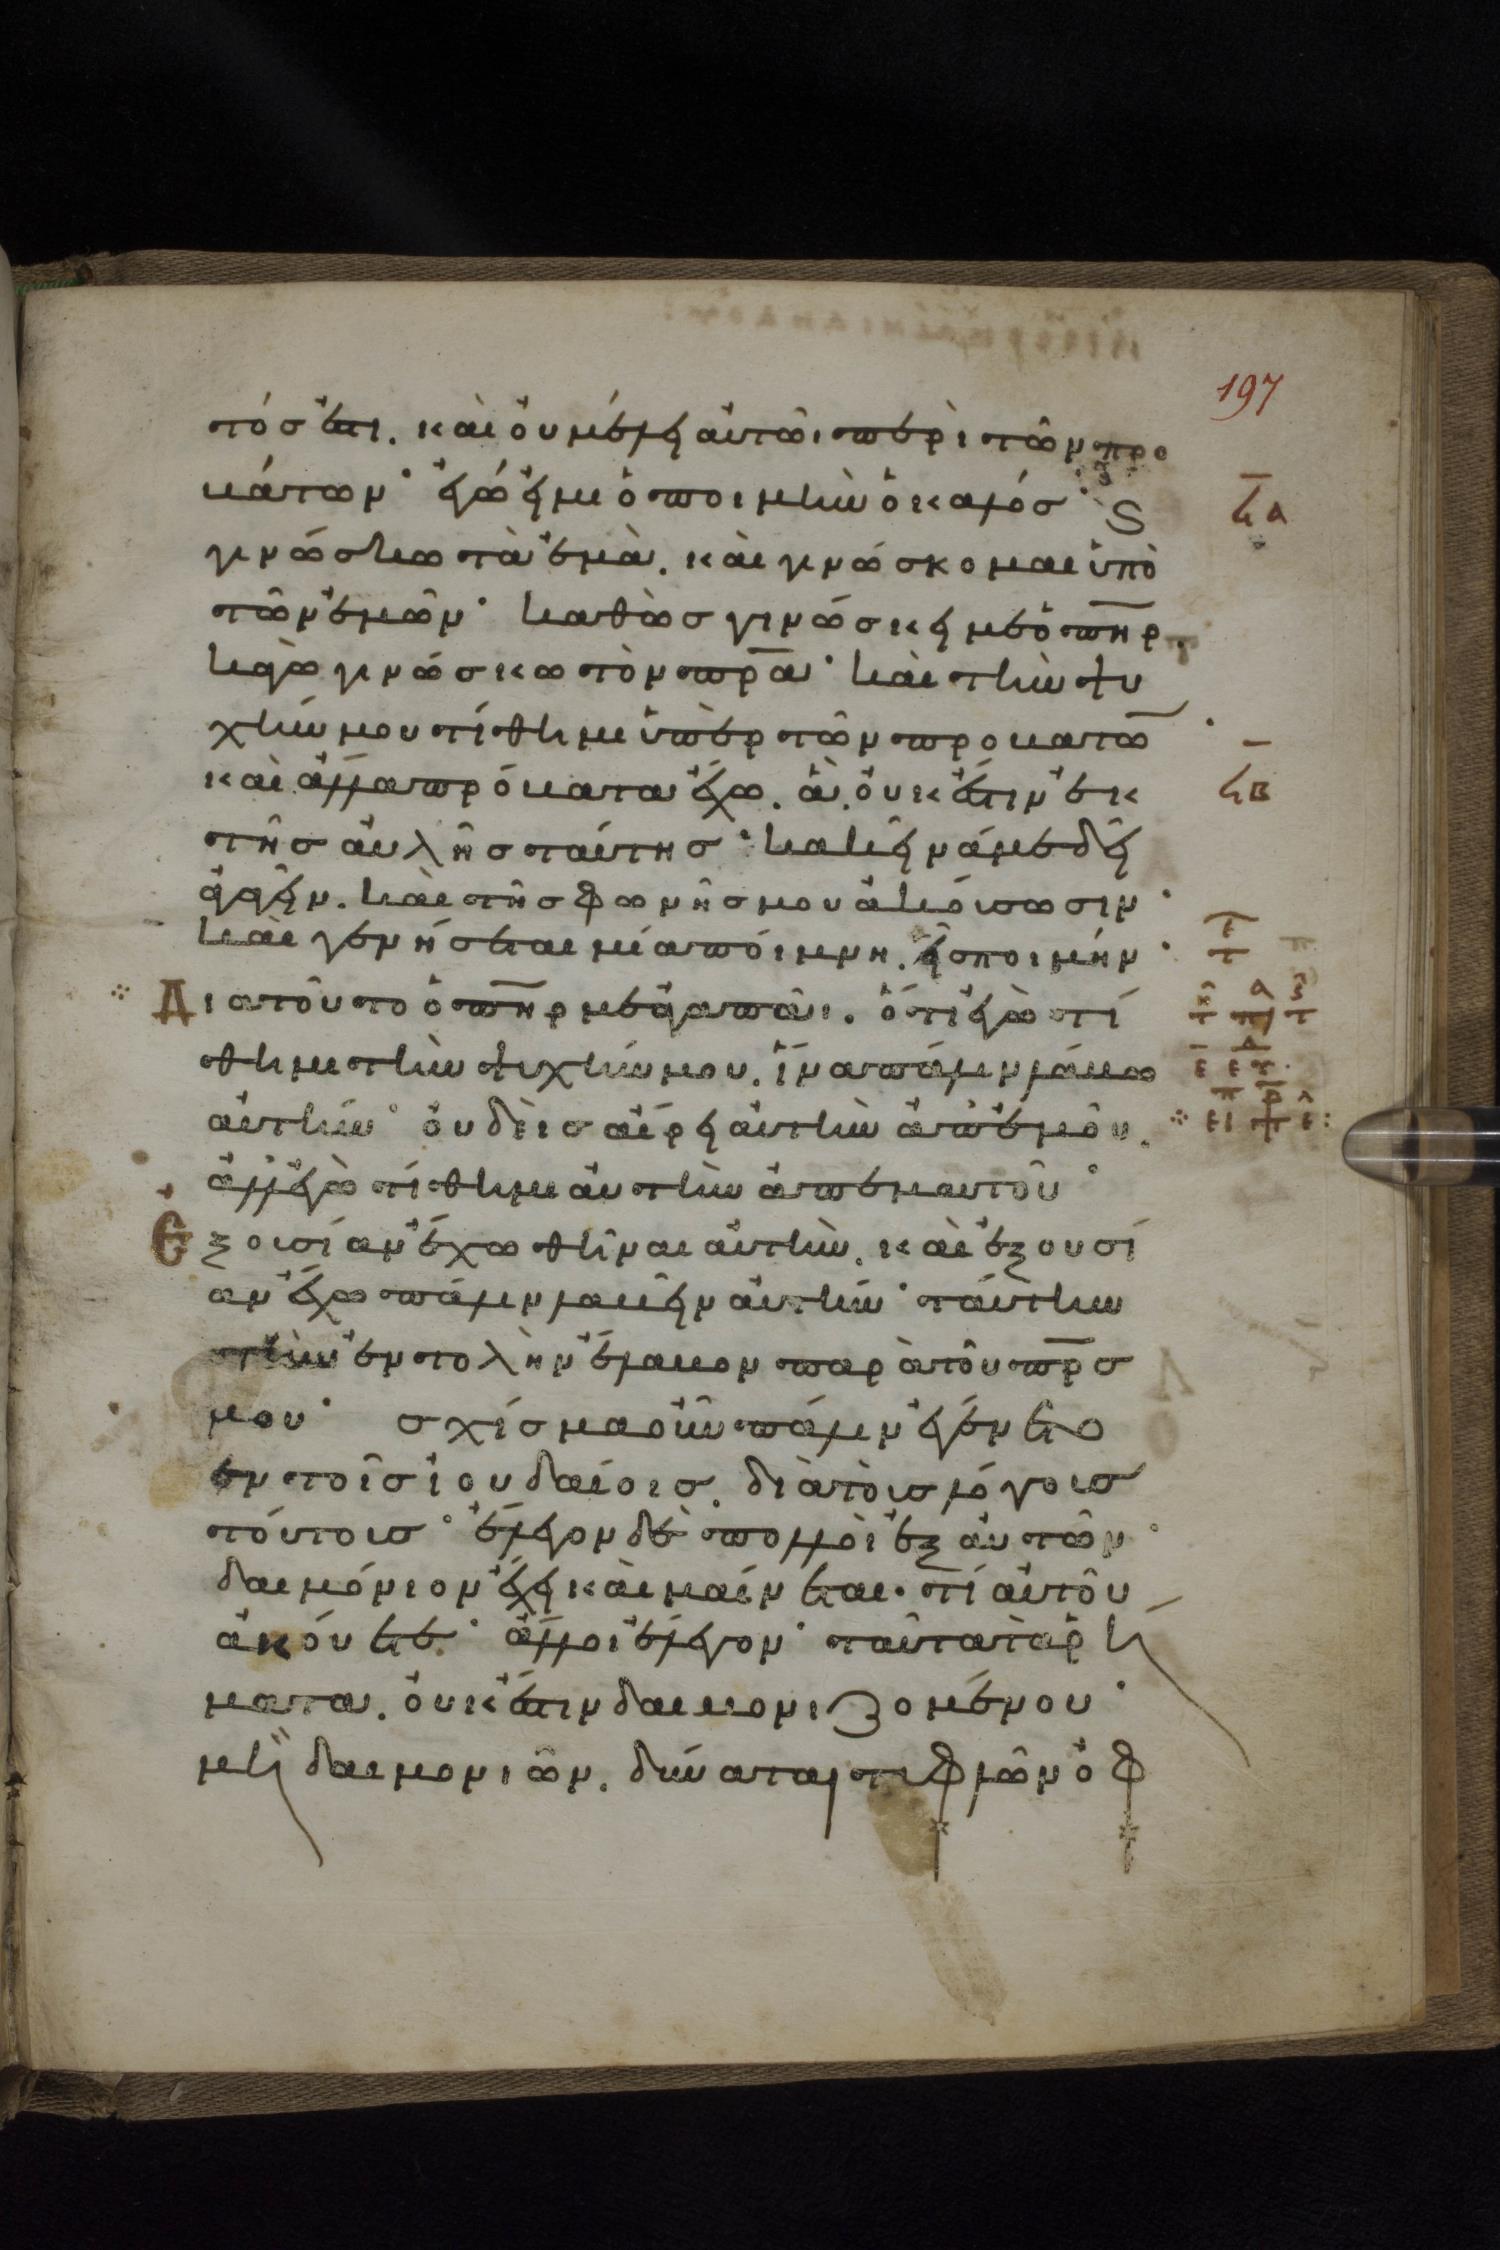 197
τός ἐστι. καὶ οὐ μέλει αὐτῶι περὶ τῶν προ
βάτων· ἐγώ εἰμι ὁ ποιμὴν ὁ καλός· ϛ
γινώσκω τὰ ἐμὰ. καὶ γινώσκομαι ὑπὸ
τῶν ἐμῶν· καθὼς γινώσκει με ὁ πηρ.
κἀγὼ γινώσκω τὸν πρα· καὶ τὴν ψυ
χήν μου τίθημι ὑπὲρ τῶν προβατω·
καὶ ἄλλα πρόβατα ἔχω. ἃ οὐκ ἔστιν ἐκ
τῆς αὐλῆς ταύτης· κακεῖνά με δεῖ
ἀγαγεῖν. καὶ τῆς φωνῆς μου ἀκούσωσιν·
καὶ γενήσεται μία ποίμνη. εἷς ποιμήν·
Διατοῦτο ὁ πηρ με ἀγαπᾶι. ὅτι ἐγὼ τί
θημι τὴν ψυχήν μου. ἵνα πάλιν λάβω
αὐτήν· οὐδεὶς αἴρει αὐτὴν ἀπ' ἐμοῦ.
ἀλλ' ἐγὼ τίθημι αὐτὴν ἀπ' ἐμαυτοῦ·
Ἐξουσίαν ἔχω θεῖναι αὐτὴν. καὶ ἐξουσί
αν ἔχω πάλιν λαβεῖν αὐτήν· ταύτην
τὴν ἐντολὴν ἔλαβον παρὰ τοῦ πρς
μου· σχίσμα οὖν πάλιν ἐγένετο
ἐν τοῖς ἰουδαίοις. διὰ τοὺς λόγους
τούτους· ἔλεγον δὲ πολλοὶ ἐξ αὐτῶν·
δαιμόνιον ἔχει καὶ μαίνεται. τί αὐτοῦ
ἀκούετε· ἄλλοι ἔλεγον· ταῦτα τὰ ῥή
ματα. οὐκ ἔστιν δαιμονιζομένου·
μὴ δαιμονιῶν. δύναται τυφλῶν ὀφ
ϟα
ϟβ